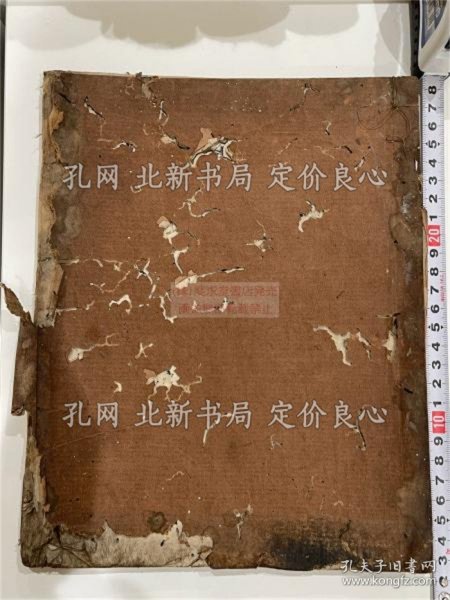 8
7
6
5
4
3
2
1
20
9
8
7
6
5
4
3
2
1
10
9
8
7
6
5
4
3
2
孔网 北新书局 定价良心
孔网 北新书局 定价良心
孔夫子旧书网
www.kongfz.com